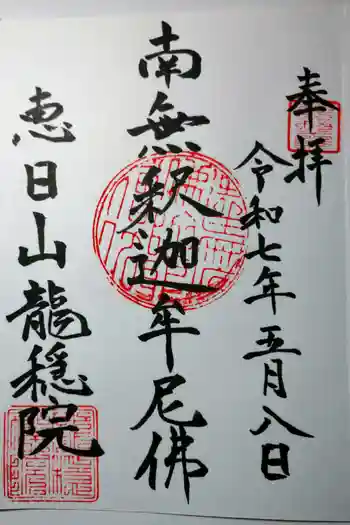 奉拝
令和七年五月八日
南無釈迦牟尼佛
恵日山龍穏院